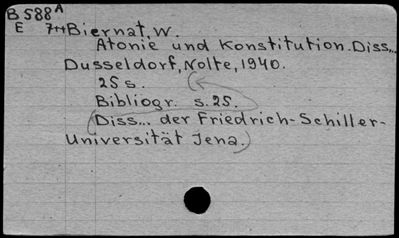 B 588 A
E 7++ Biernat, W.
Atonie und Konstitution. Diss...
Dusseldorf, Nolte, 1940.
25 s.
Bibliogr. s. 25.
(Diss... der Friedrich-Schiller-
Universität Jena.)